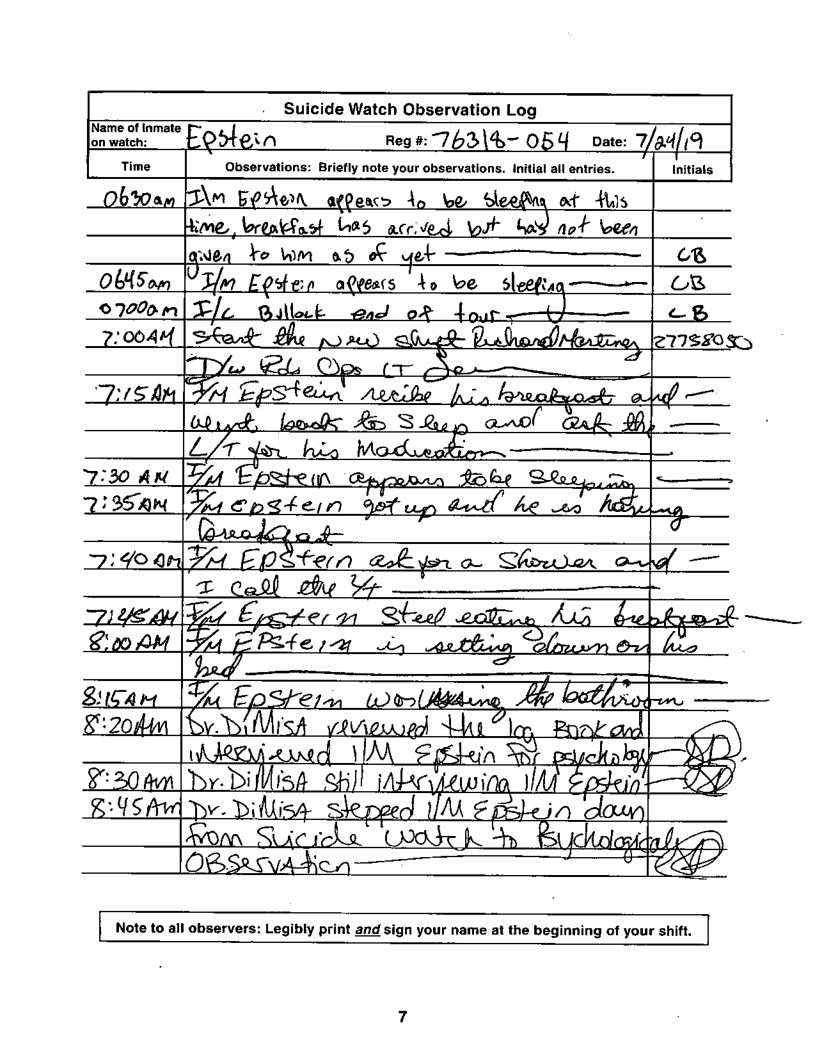 Suicide Watch Observation Log
Name of Inmate on watch: Epstein Reg #: 76318-054 Date: 7/24/19
Time Observations: Briefly note your observations. Initial all entries. Initials
0630am I\m Epstein appears to be sleeping at this
time, breakfast has arrived but has not been
given to him as of yet CB
0645am I/m Epstein appears to be sleeping CB
0700am I/c Bullock end of tour CB
7:00AM Start the New shift Richard Martinez 27758050
D/w Rds Ops LT
7:15AM I/M EpStein recibe his breakfast and
back to Sleep and ask the
L/T for his Maducation
7:30 AM I/M EpStein appears tobe Sleeping
7:35AM I/M EpStein got up and he is having
breakfast
7:40 AM I/M EPStein ask for a Shower and
I call the L/t
7:45AM I/M Epstein Steel eating his breakfast
8:00 AM I/M EPStein is setting down on his
bed
8:15AM I/M EpStein was using the bathroom
8:20Am Dr. DiMisA reviewed the log Book and
interviewed I/M Epstein for psychology
8:30Am Dr. DiMisA still interviewing I/M Epstein
8:45Am Dr. DiMisA stepped I/M Epstein down
from Suicide watch to Bychological
OBServAtion
Note to all observers: Legibly print and sign your name at the beginning of your shift.
7